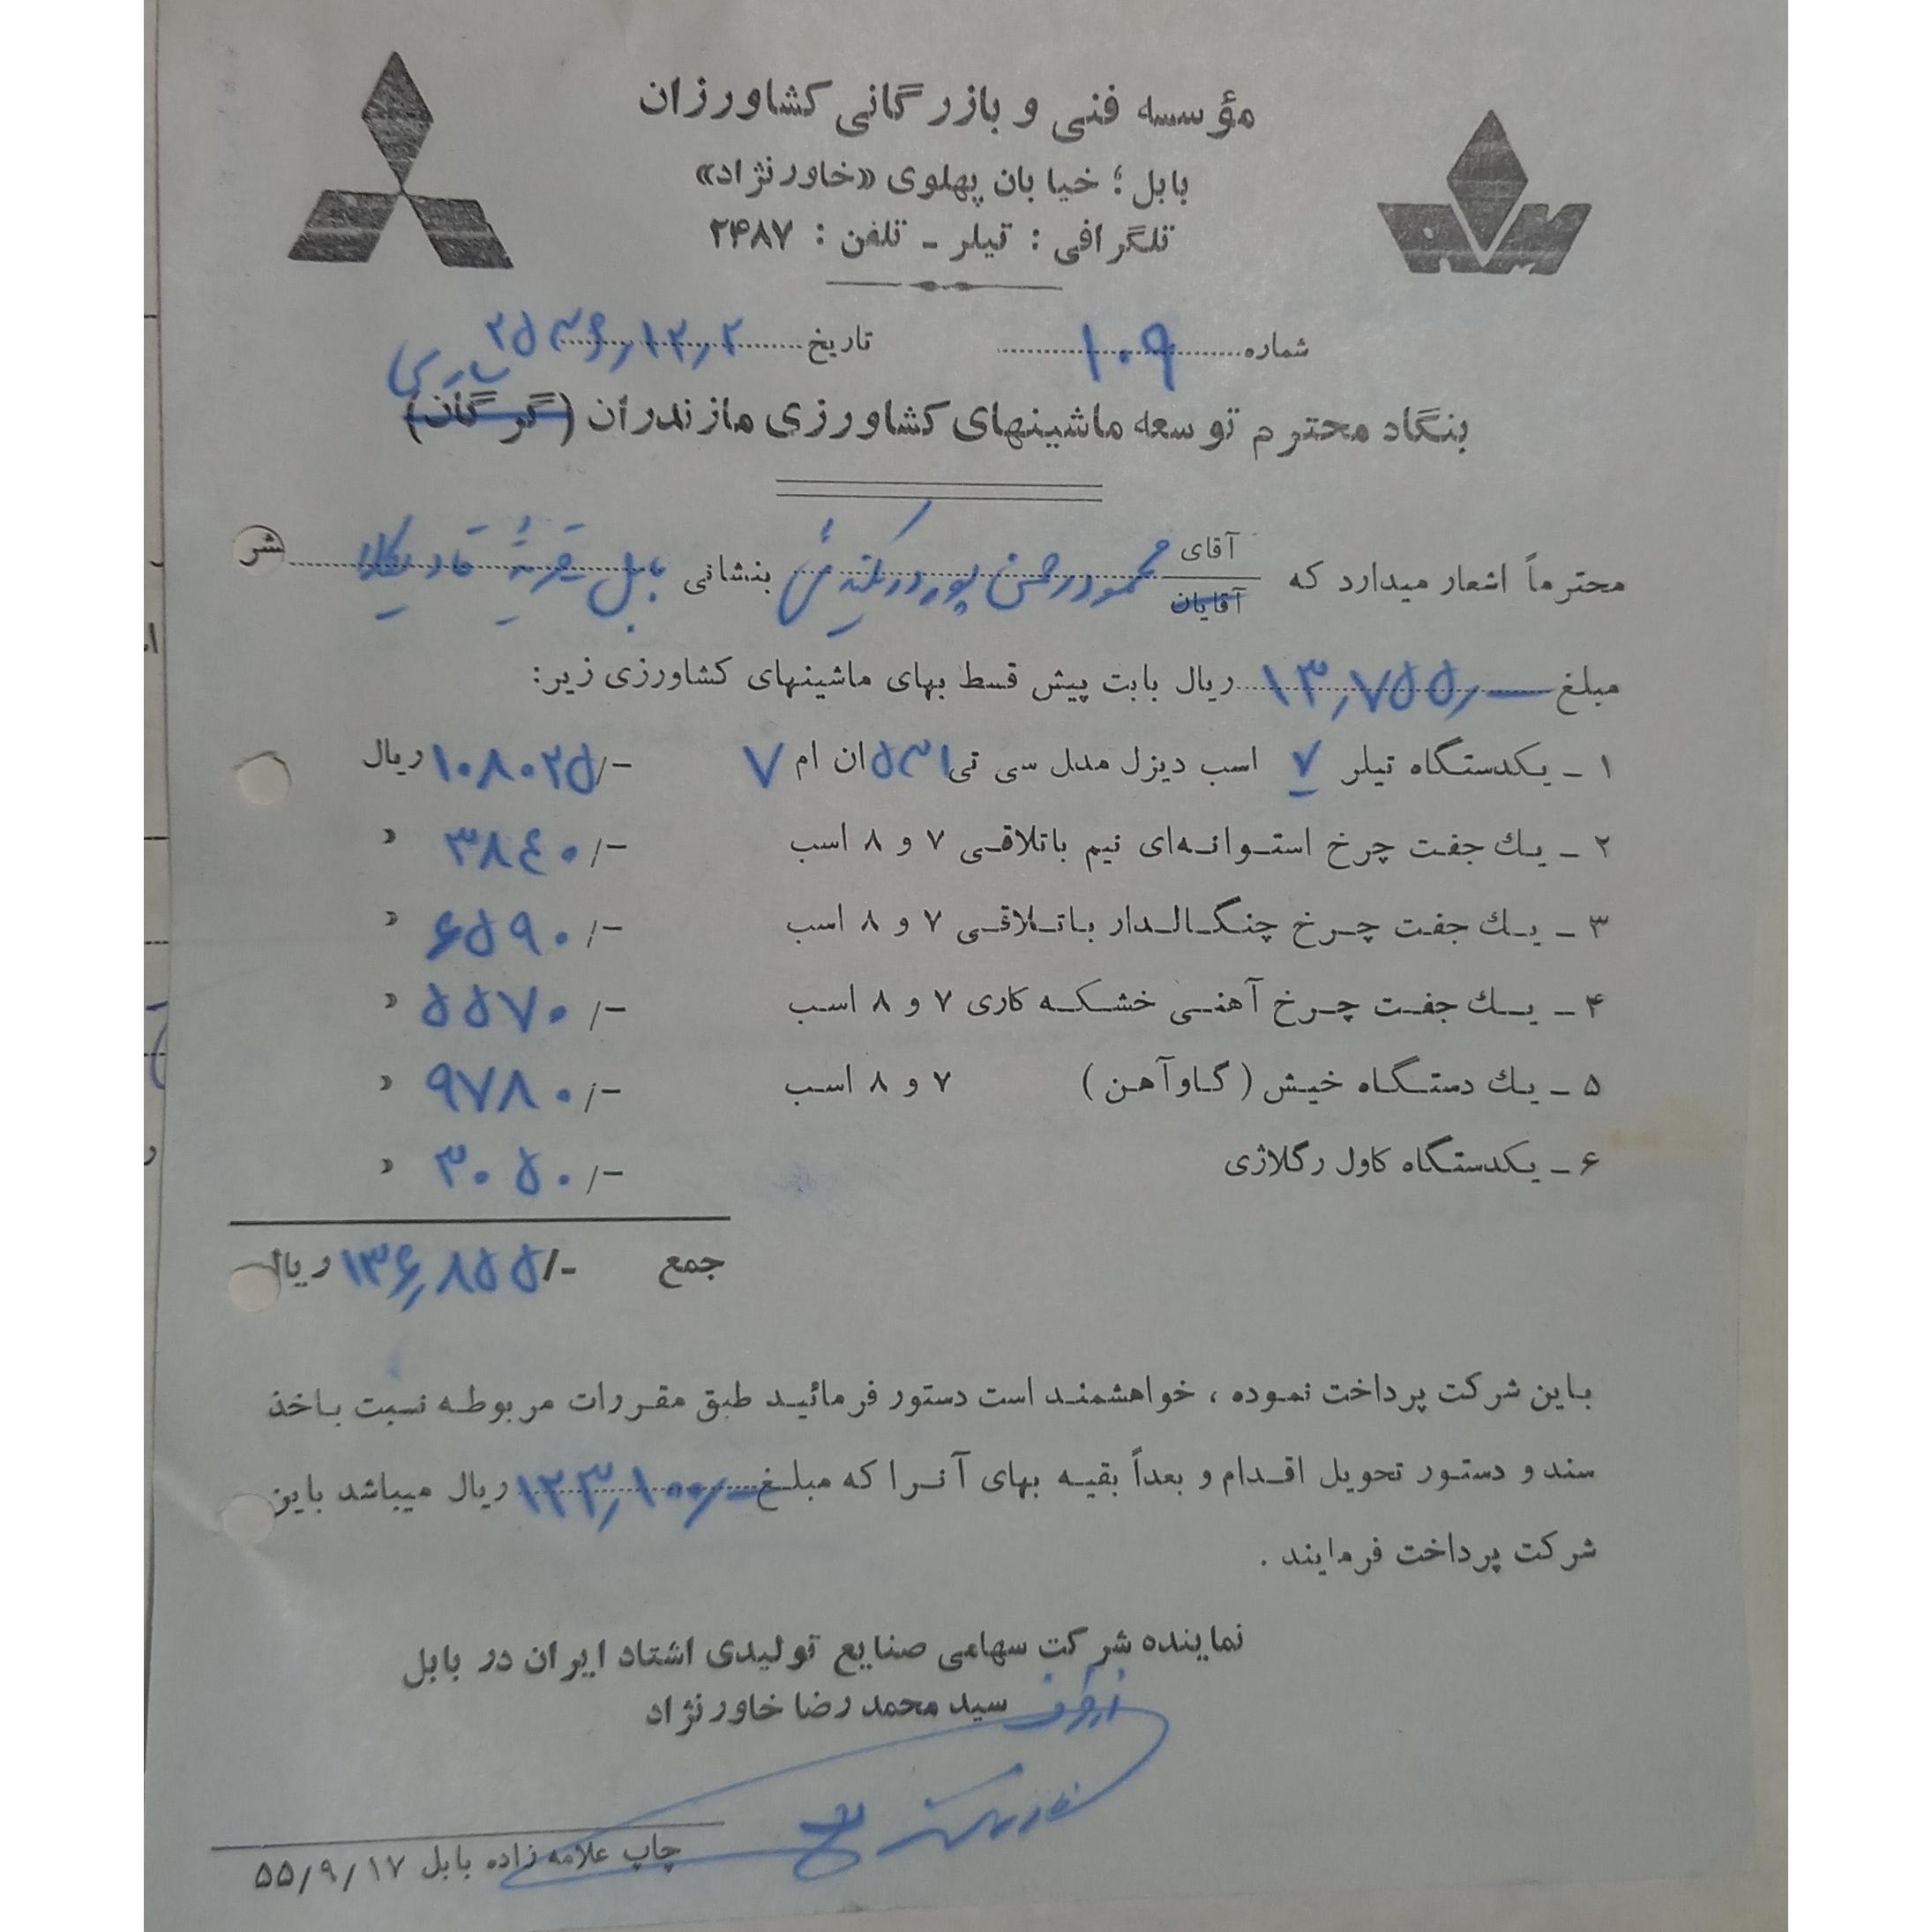 مؤسسه فنی و بازرگانی کشاورزان
بابل ؛ خیابان پهلوی «خاورنژاد»
تلگرافی : تیلر ـ تلفن : ۲۴۸۷
شماره ۱۰۹ تاریخ ۲۵۳۶٫۱۲٫۲
بنگاه محترم توسعه ماشینهای کشاورزی مازندران (گرگان) ساری
محترماً اشعار میدارد که آقای / آقایان محمود رحمن پور بنشانی بابل قریه قادیکلا
مبلغ ۱۳٫۷۵۵٫ـ ریال بابت پیش قسط بهای ماشینهای کشاورزی زیر:
۱ ـ یکدستگاه تیلر ۷ اسب دیزل مدل سی تی ۵۳۱ ان ام ۷ ۱۰۸۰۲۵/- ریال
۲ ـ یك جفت چرخ استوانه‌ای نیم باتلاقی ۷ و ۸ اسب ۳۸۴۰/- «
۳ ـ یك جفت چرخ چنگالدار باتلاقی ۷ و ۸ اسب ۶۵۹۰/- «
۴ ـ یك جفت چرخ آهنی خشکه کاری ۷ و ۸ اسب ۵۵۷۰/- «
۵ ـ یك دستگاه خیش ( گاوآهن ) ۷ و ۸ اسب ۹۷۸۰/- «
۶ ـ یکدستگاه کاول رگلاژی ۳۰۵۰/- «
جمع ۱۳۶٫۸۵۵/- ریال
باین شرکت پرداخت نموده ، خواهشمند است دستور فرمائید طبق مقررات مربوطه نسبت باخذ
سند و دستور تحویل اقدام و بعداً بقیه بهای آنرا که مبلغ ۱۲۳٫۱۰۰٫ـ ریال میباشد باین
شرکت پرداخت فرمایند .
نماینده شرکت سهامی صنایع تولیدی اشتاد ایران در بابل
از طرف سید محمد رضا خاورنژاد
چاپ علامه زاده بابل ۵۵/۹/۱۷